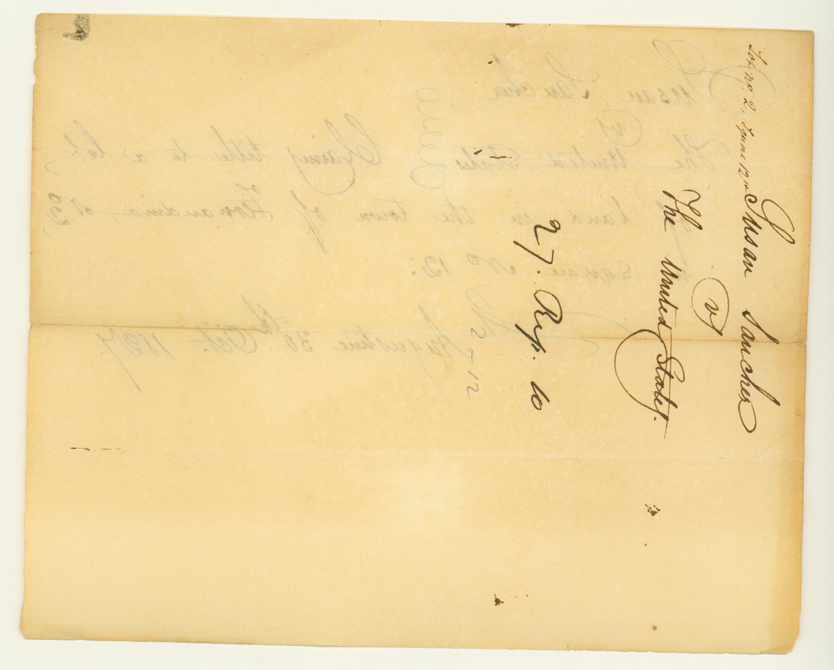 Lot no. 2. Square 12
Susan Sanchez
vs
The United States.
27. Rep. 10
2-12
Susan Sanchez
vs
The United States
Claims title to a lot
land in the town of Fernandina No 2,
square No 12.
St Augustine 30th Oct. 1827